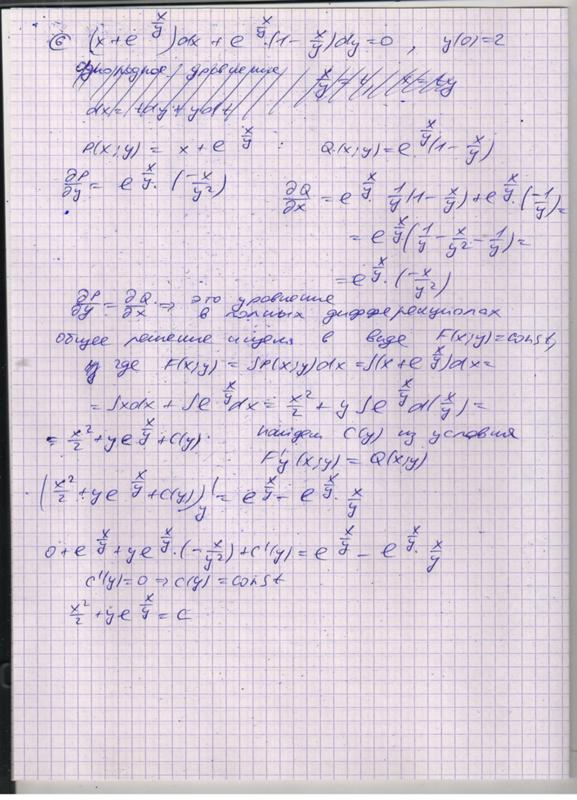 ⑥ (x+e^{x/y})dx + e^{x/y}·(1-x/y)dy=0, y(0)=2
однородное уравнение x/y=t, x=ty
dx=tdy+ydt
P(x;y) = x+e^{x/y} Q(x;y)=e^{x/y}(1-x/y)
∂P/∂y = e^{x/y}·(-x/y²) ∂Q/∂x = e^{x/y}·1/y(1-x/y)+e^{x/y}·(-1/y)=
= e^{x/y}(1/y-x/y²-1/y)=
= e^{x/y}·(-x/y²)
∂P/∂y = ∂Q/∂x ⇒ это уравнение
в полных дифференциалах
общее решение ищем в виде F(x;y)=const,
где F(x;y) = ∫P(x;y)dx = ∫(x+e^{x/y})dx=
= ∫xdx + ∫e^{x/y}dx = x²/2 + y∫e^{x/y}d(x/y)=
= x²/2+ye^{x/y}+C(y). найдем C(y) из условия
F'y(x;y) = Q(x;y)
(x²/2+ye^{x/y}+C(y))'y = e^{x/y} - e^{x/y}·x/y
0+e^{x/y}+ye^{x/y}·(-x/y²)+C'(y) = e^{x/y} - e^{x/y}·x/y
C'(y)=0 ⇒ C(y)=const
x²/2+ye^{x/y}=C